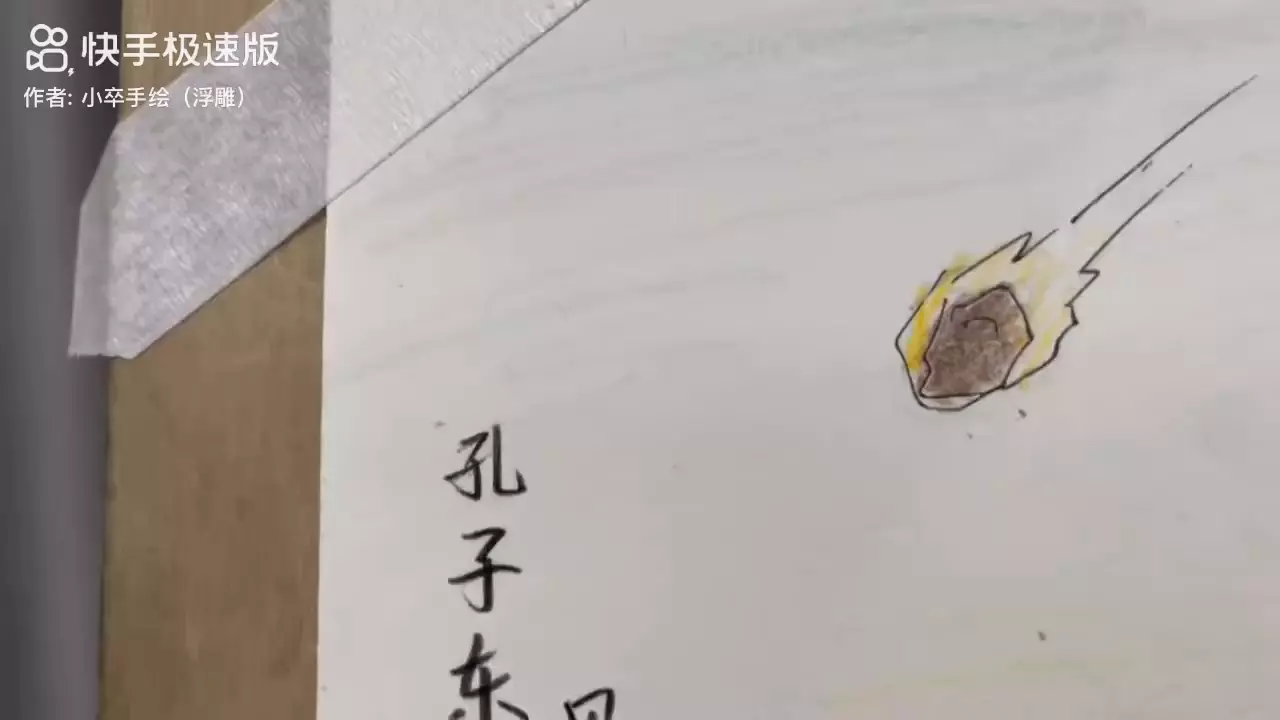 快手极速版
作者: 小卒手绘（浮雕）
孔子东